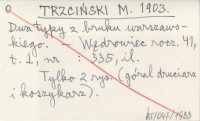 TRZCIŃSKI M. 1903.
Dwa typy z bruku warszaws-
kiego. — Wędrowiec rocz. 41,
t. 1, nr : 335, il.
Tylko 2 rys. (góral druciarz
i koszykarz).